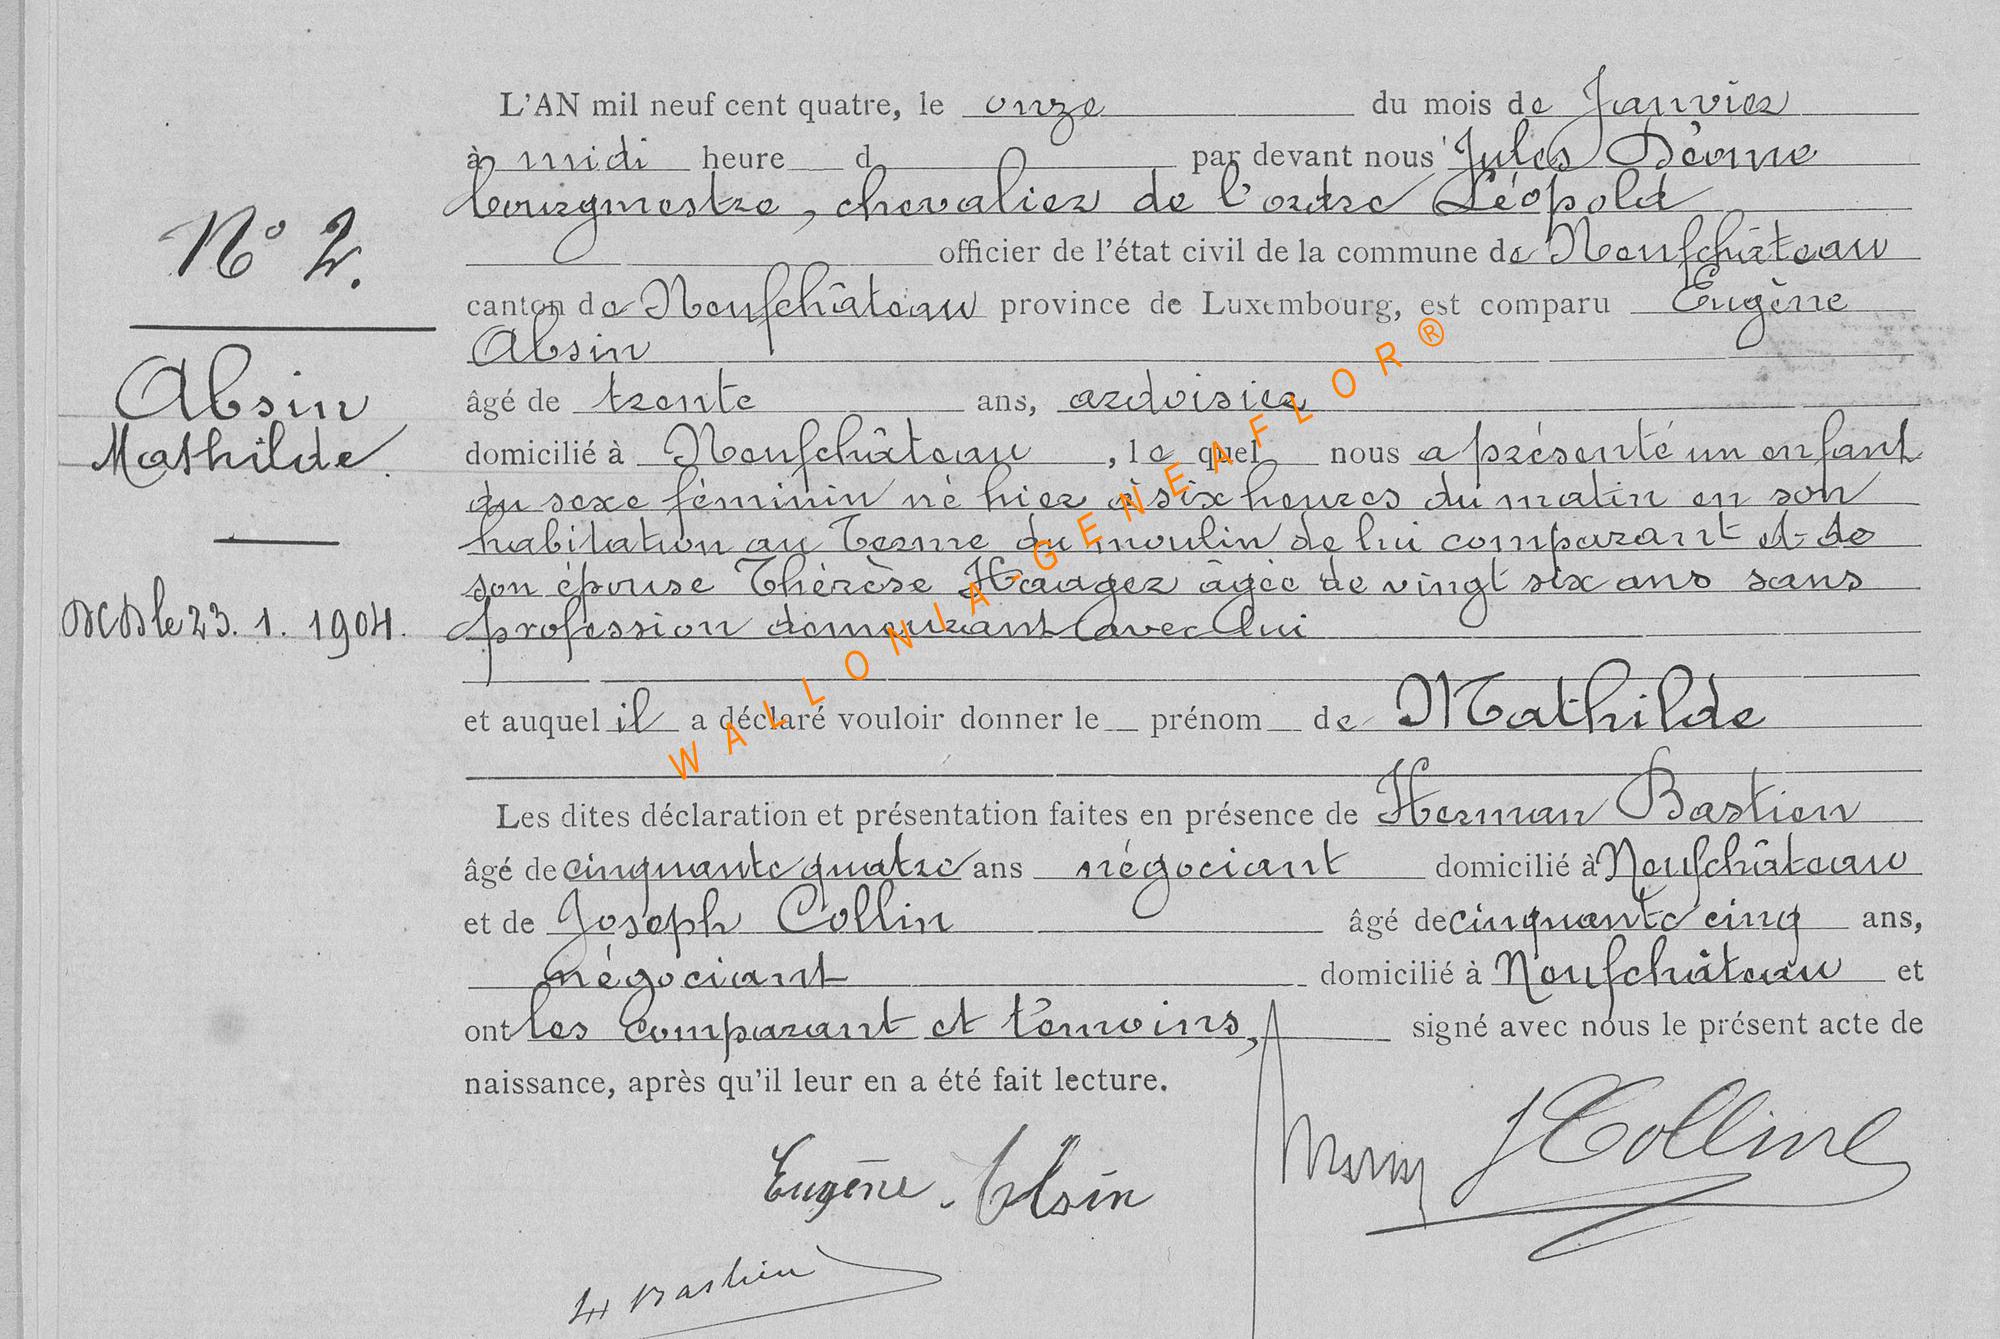 L'AN mil neuf cent quatre, le onze du mois de Janvier
à midi heure d par devant nous Jules
bourgmestre, chevalier de l'ordre Léopold
N° 2.
officier de l'état civil de la commune de Neufchâteau
canton de Neufchâteau province de Luxembourg, est comparu Eugène
Absin
Absin
Mathilde.
âgé de trente ans, ardoisier
domicilié à Neufchâteau, le quel nous a présenté un enfant
du sexe féminin né hier à six heures du matin en son
habitation au Terme du moulin de lui comparant et de
son épouse Thérèse Haagez âgée de vingt six ans sans
DCD le 23. 1. 1904.
profession demeurant avec lui
et auquel il a déclaré vouloir donner le prénom de Mathilde
Les dites déclaration et présentation faites en présence de Herman Bastien
âgé de cinquante quatre ans négociant domicilié à Neufchâteau
et de Joseph Collin âgé de cinquante cinq ans,
négociant domicilié à Neufchâteau et
ont les comparant et témoins, signé avec nous le présent acte de
naissance, après qu'il leur en a été fait lecture.
J Colline
Eugène Absin
H Bastien
WALLONIA-GENEAFLOR®